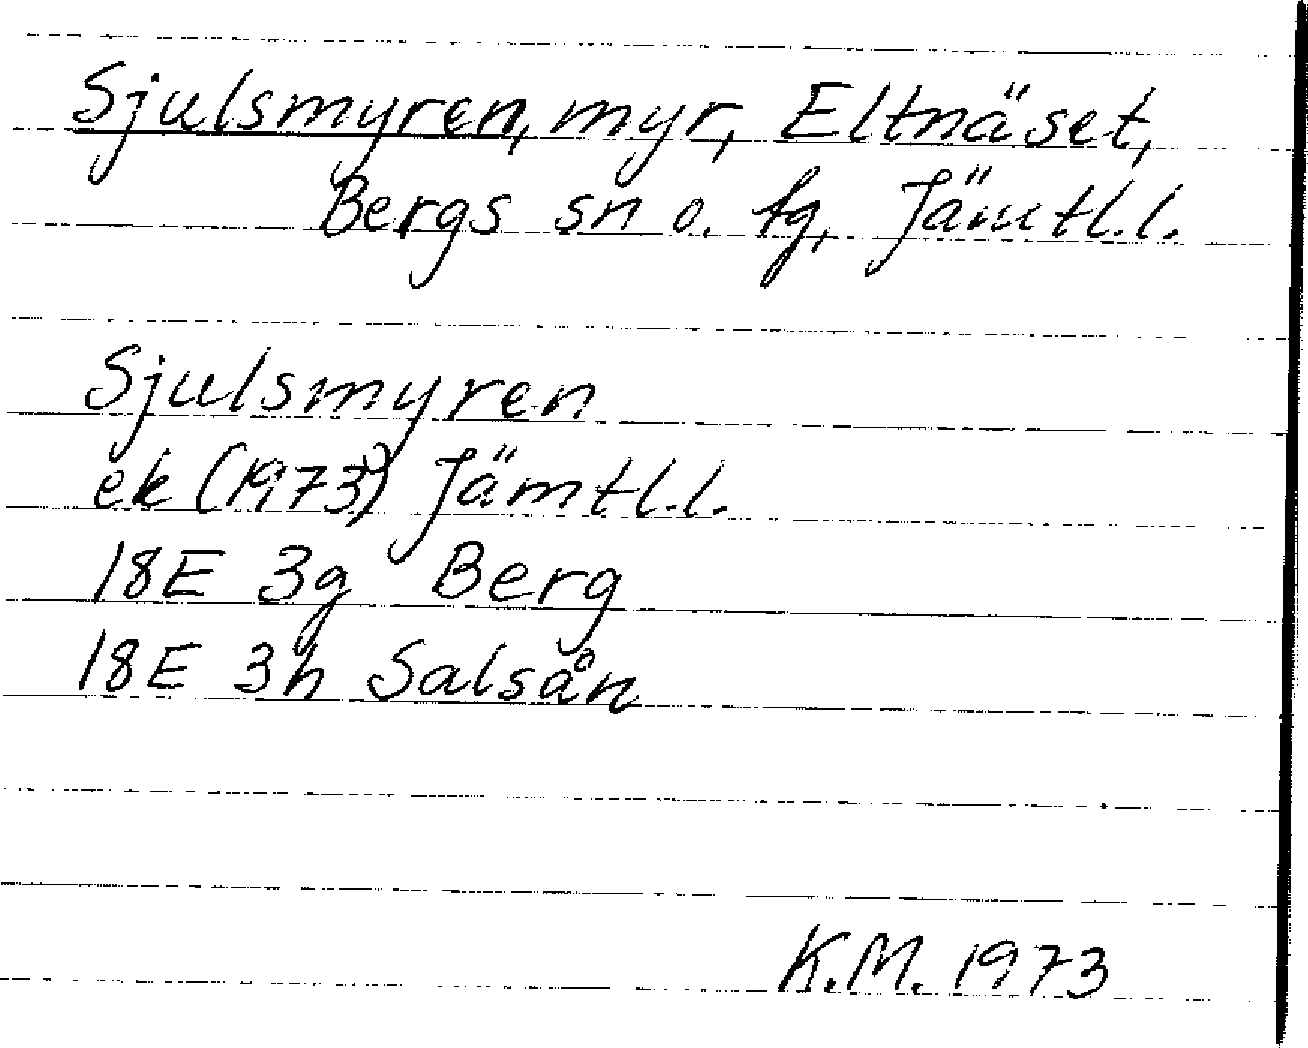 Sjulsmyren, myr, Eltnäset,
Bergs sn o. tg, Jämtl.l.
Sjulsmyren
ek (1973) Jämtl.l.
18E 3g Berg
18E 3h Salsån
K.M. 1973